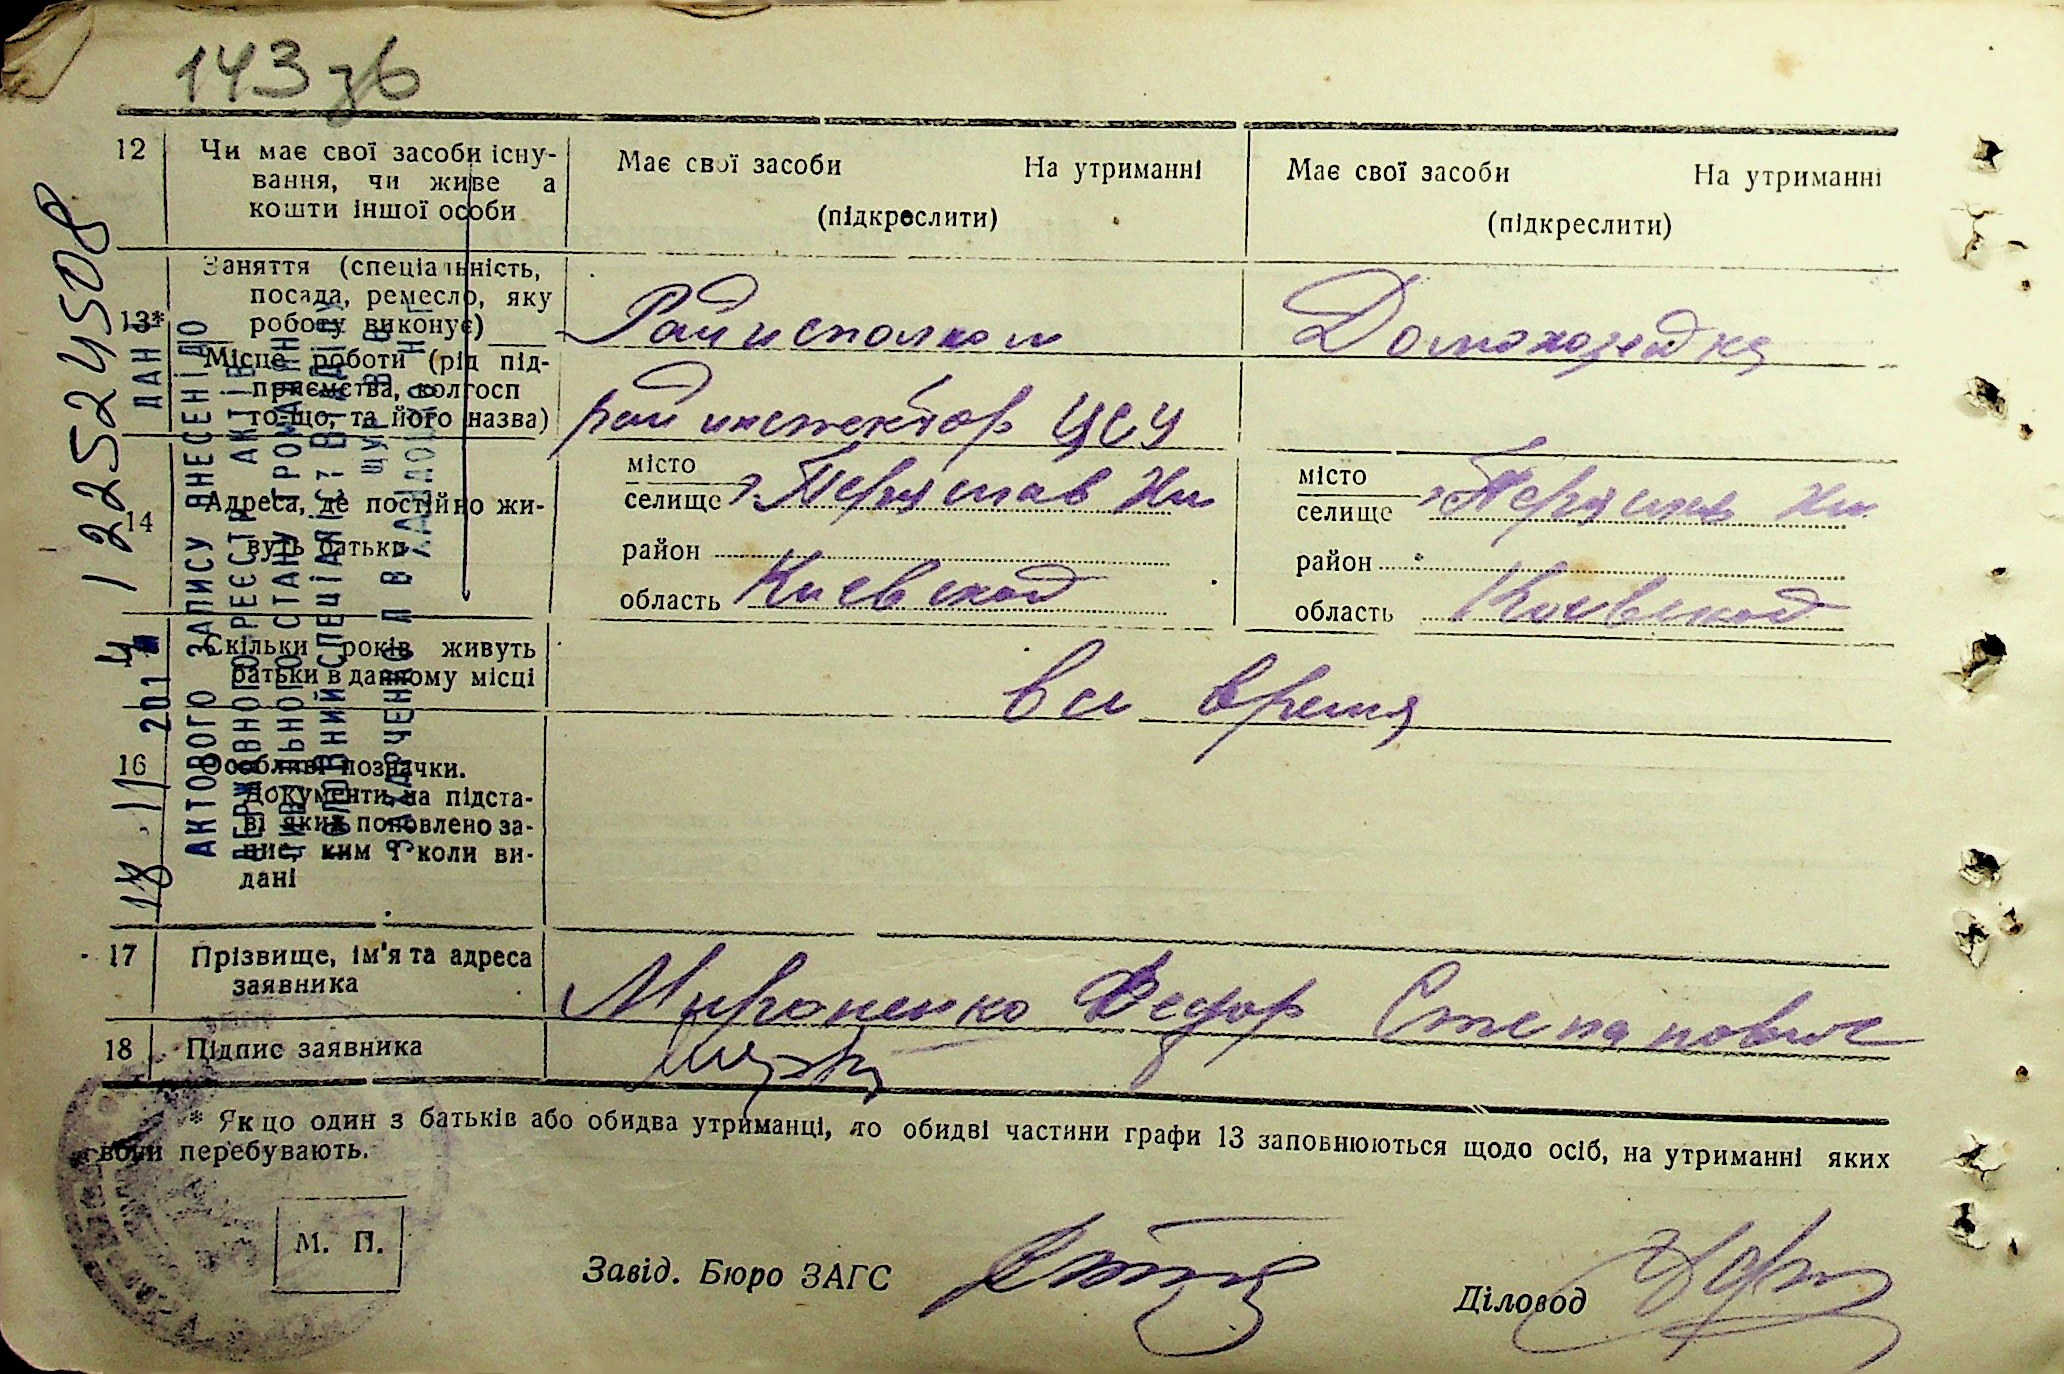 143 зв
12
Чи має свої засоби існу-
вання, чи живе а
кошти іншої особи
Має свої засоби На утриманні
(підкреслити)
Має свої засоби На утриманні
(підкреслити)
13*
Заняття (спеціальність,
посада, ремесло, яку
роботу виконує)
Райисполком
Домохозяйка
Місце роботи (рід під-
приємства, колгосп
то-що, та його назва)
рай инспектор ЦСУ
14
Адреса, де постійно жи-
вуть батьки
місто
селище г. Переяслав Хм
район
область Киевской
місто
селище г. Переяслав Хм
район
область Киевской
Скільки років живуть
батьки в данному місці
все время
16
Особливі позначки.
Документи на підста-
ві яких поновлено за-
пис, ким і коли ви-
дані
17
Прізвище, ім'я та адреса
заявника
Мироненко Федор Степанович
18
Підпис заявника
* Якцо один з батьків або обидва утриманці, то обидві частини графи 13 заповнюються щодо осіб, на утриманні яких
вони перебувають.
М. П.
Завід. Бюро ЗАГС
Діловод
122524508
14 . 11 2014
ДАНІ
АКТОВОГО ЗАПИСУ ВНЕСЕНІ ДО
ДЕРЖАВНОГО РЕЄСТРУ АКТІВ
ЦИВІЛЬНОГО СТАНУ ГРОМАДЯН
ГОЛОВНИЙ СПЕЦІАЛІСТ ВІДДІЛУ
ЗАХАРЧЕНКО Л В